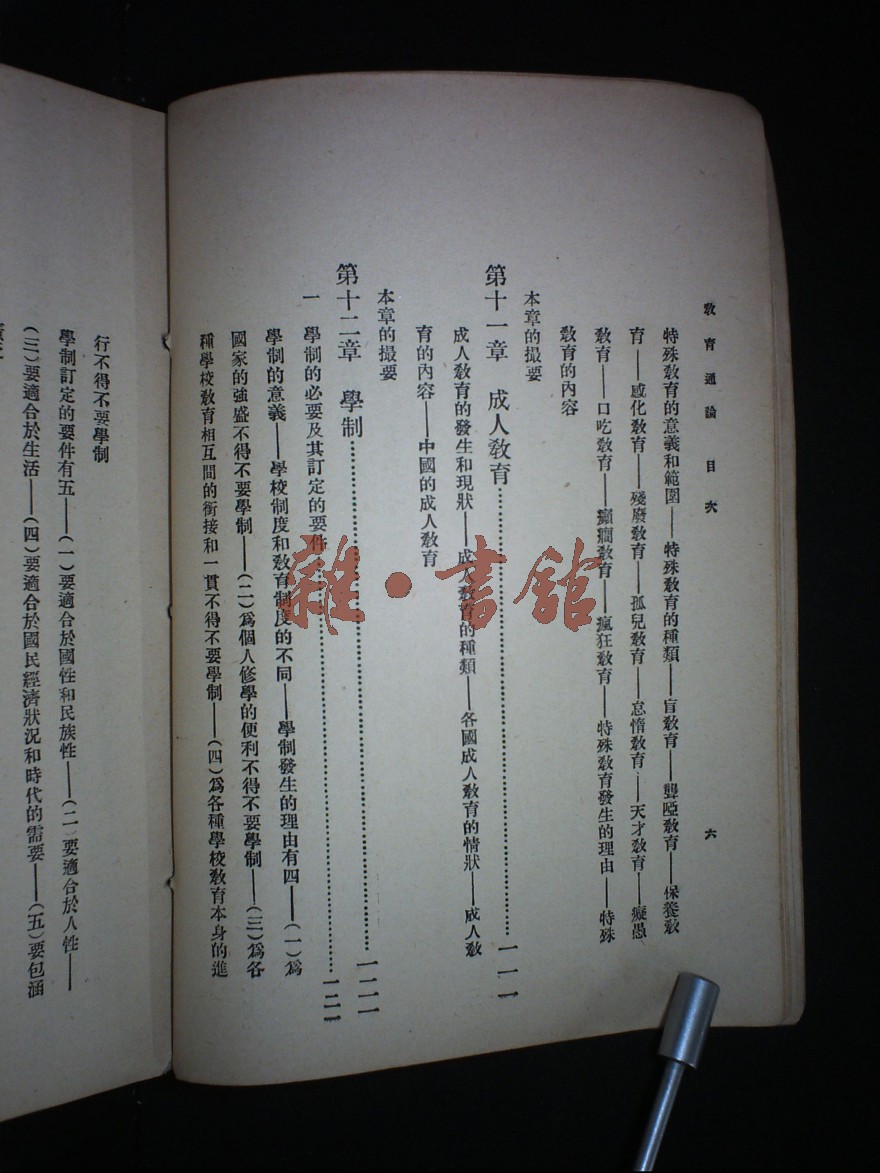 教育通論 目次 六
特殊教育的意義和範圍——特殊教育的種類——盲教育——聾啞教育——保養教
育——感化教育——殘廢教育——孤兒教育——怠惰教育——天才教育——癡愚
教育——口吃教育——癲癇教育——瘋狂教育——特殊教育發生的理由——特殊
教育的內容
本章的撮要
第十一章 成人教育……一一一
成人教育的發生和現狀——成人教育的種類——各國成人教育的情狀——成人教
育的內容——中國的成人教育
本章的撮要
第十二章 學制……一二一
一 學制的必要及其訂定的要件……一二一
學制的意義——學校制度和教育制度的不同——學制發生的理由有四——(一)爲
國家的強盛不得不要學制——(二)爲個人修學的便利不得不要學制——(三)爲各
種學校教育相互間的銜接和一貫不得不要學制——(四)爲各種學校教育本身的進
行不得不要學制
學制訂定的要件有五——(一)要適合於國性和民族性——(二)要適合於人性——
(三)要適合於生活——(四)要適合於國民經濟狀況和時代的需要——(五)要包涵
雜·書館